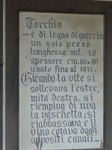 Torchio
è di legno di quercia
un solo pezzo
lunghezza mt. 10
spessore cm. 80x80
usato fino al 1911.
Girando la vite si
sollevava l'estre-
mità destra, si
riempiva di uva
la vaschetta, si
riabbassava e il
vino colava dagli
appositi canali.